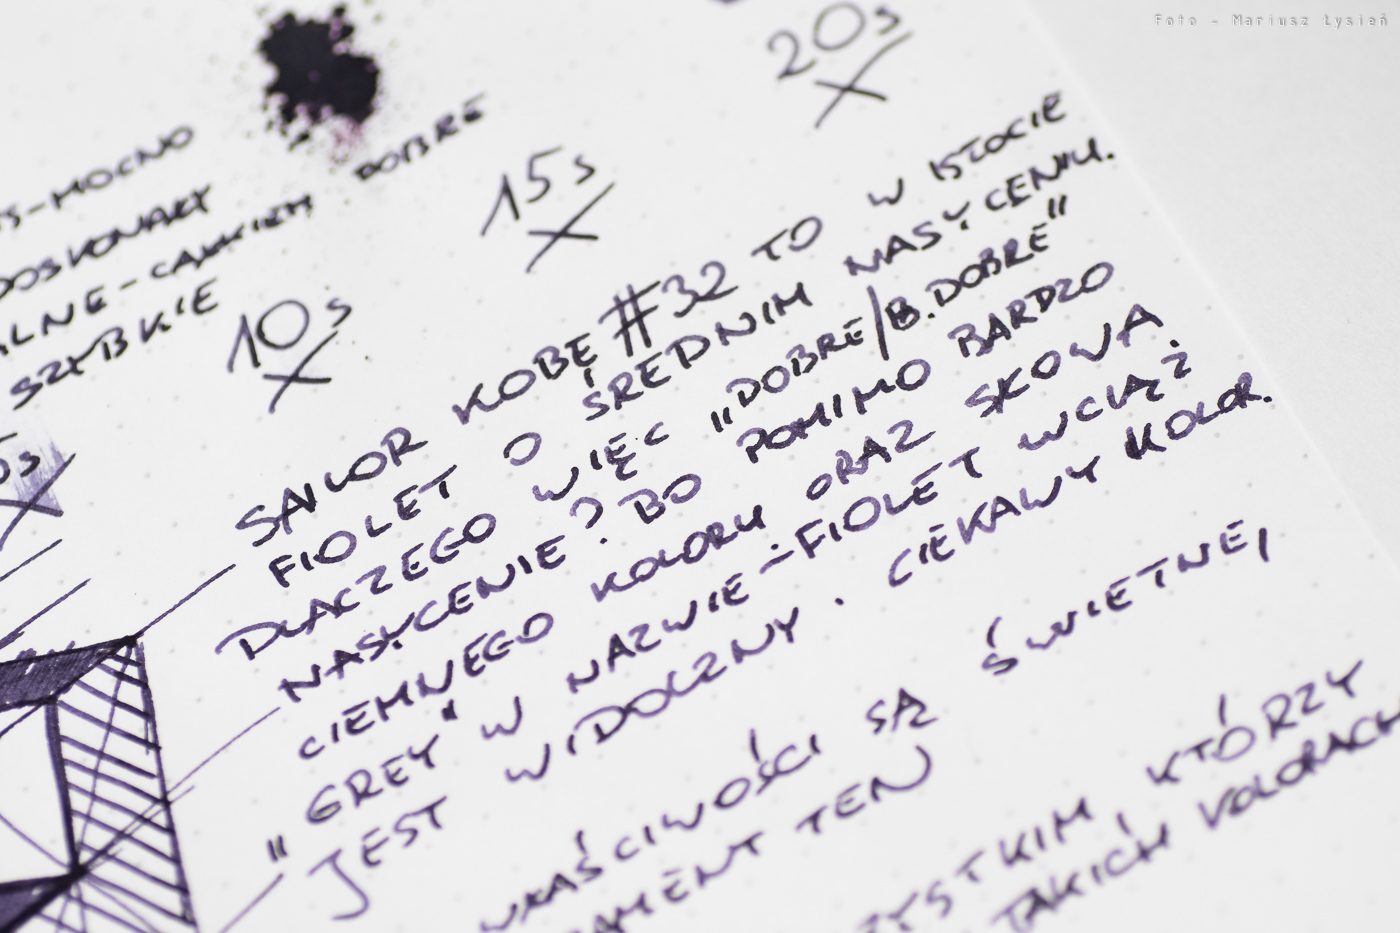 Foto - Mariusz Łysień
20s
DOBRE
-MOCNO
DOSKONAŁY
-CAŁKIEM
SZYBKIE
15s
10s
SAILOR KOBE #32 TO W ISTOCIE
FIOLET O ŚREDNIM NASYCENIU.
DLACZEGO WIĘC „DOBRE/B.DOBRE"
NASYCENIE? BO POMIMO BARDZO
CIEMNEGO KOLORU ORAZ SŁOWA
„GREY" W NAZWIE - FIOLET WCIĄŻ
JEST WIDOCZNY. CIEKAWY KOLOR.
WŁAŚCIWOŚCI SĄ ŚWIETNE,
TEN
KTÓRZY
TAKICH KOLORACH